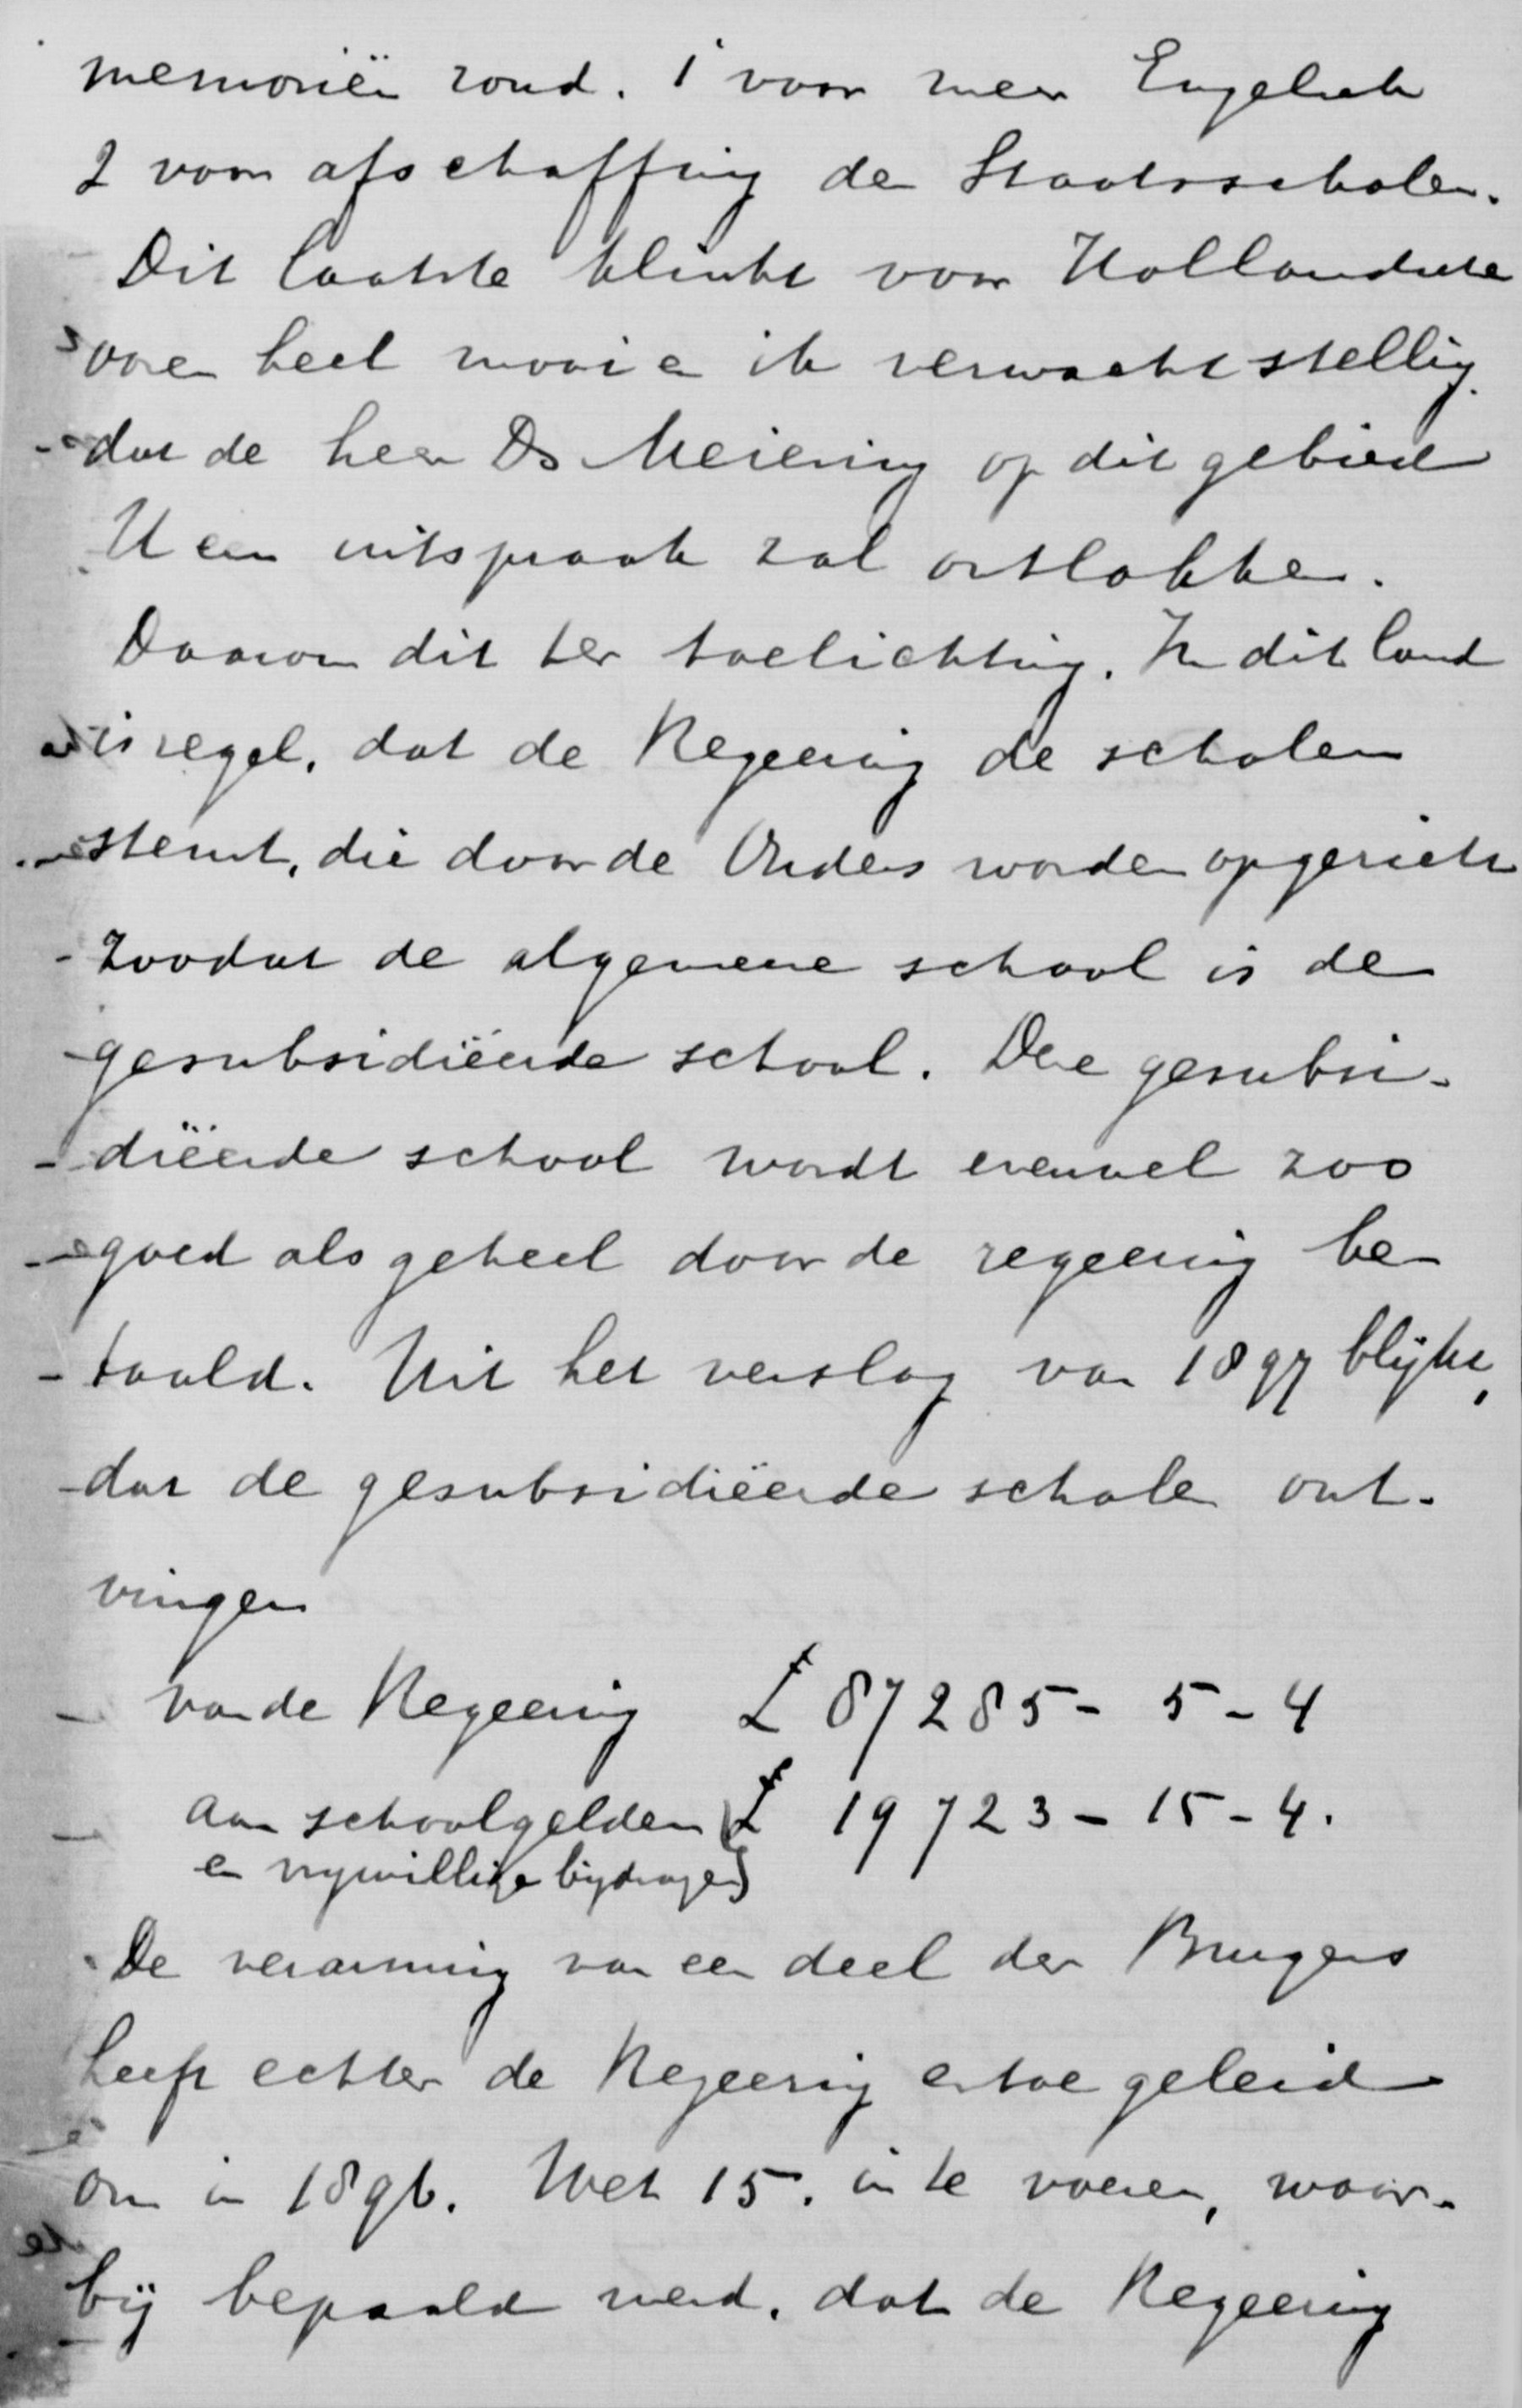 memoriën rond. 1° voor meer Engelsch
2 voor afschaffing der Staatsscholen.
Dit laatste klinkt voor Hollandsche
ooren heel mooi en ik verwacht stellig,
dat de heer Ds Meiering op dit gebied
U een uitspraak zal ontlokken.
Daarom dit ter toelichting. In dit land
is regel, dat de Regeering de scholen
steunt, die door de Ouders worden opgericht
zoodat de algemeene school is de
gesubsidiëerde school. Deze gesubsi-
diëerde school wordt evenwel zoo
goed als geheel door de regeering be-
taald. Uit het verslag van 1897 blijkt,
dat de gesubsidiëerde scholen ont-
vingen
van de Regeering £ 87285 - 5 - 4
aan schoolgelden £ 19723 - 15 - 4.
en vrywillige bijdragen
De verarming van een deel der Burgers
heeft echter de Regeering ertoe geleid
om in 1896. Wet 15. in te voeren, waar-
bij bepaald werd, dat de Regeering